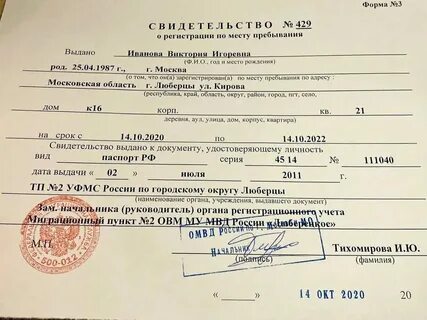 Форма №3
СВИДЕТЕЛЬСТВО № 429
о регистрации по месту пребывания
Выдано Иванова Виктория Игоревна
(Ф.И.О., год и место рождения)
род. 25.04.1987 г., г. Москва
(о том, что он(а) зарегистрирован(а) по месту пребывания по адресу :
Московская область г. Люберцы ул. Кирова
(республика, край, область, округ, район, город, пгт, село,
дом к16 корп. кв. 21
деревня, аул, улица, дом, корпус, квартира)
на срок с 14.10.2020 по 14.10.2022
Свидетельство выдано к документу, удостоверяющему личность
вид паспорт РФ серия 45 14 № 111040
дата выдачи « 02 » июля 2011 г.
ТП №2 УФМС России по городскому округу Люберцы
(наименование органа, учреждения, выдавшего документ)
Зам. начальника (руководитель) органа регистрационного учета
Миграционный пункт №2 ОВМ МУ МВД России «Люберецкое»
ОМВД России по г.
НАЧАЛЬНИК
М.П. Тихомирова И.Ю.
(подпись) (фамилия)
500-012
« 14 ОКТ 2020 20